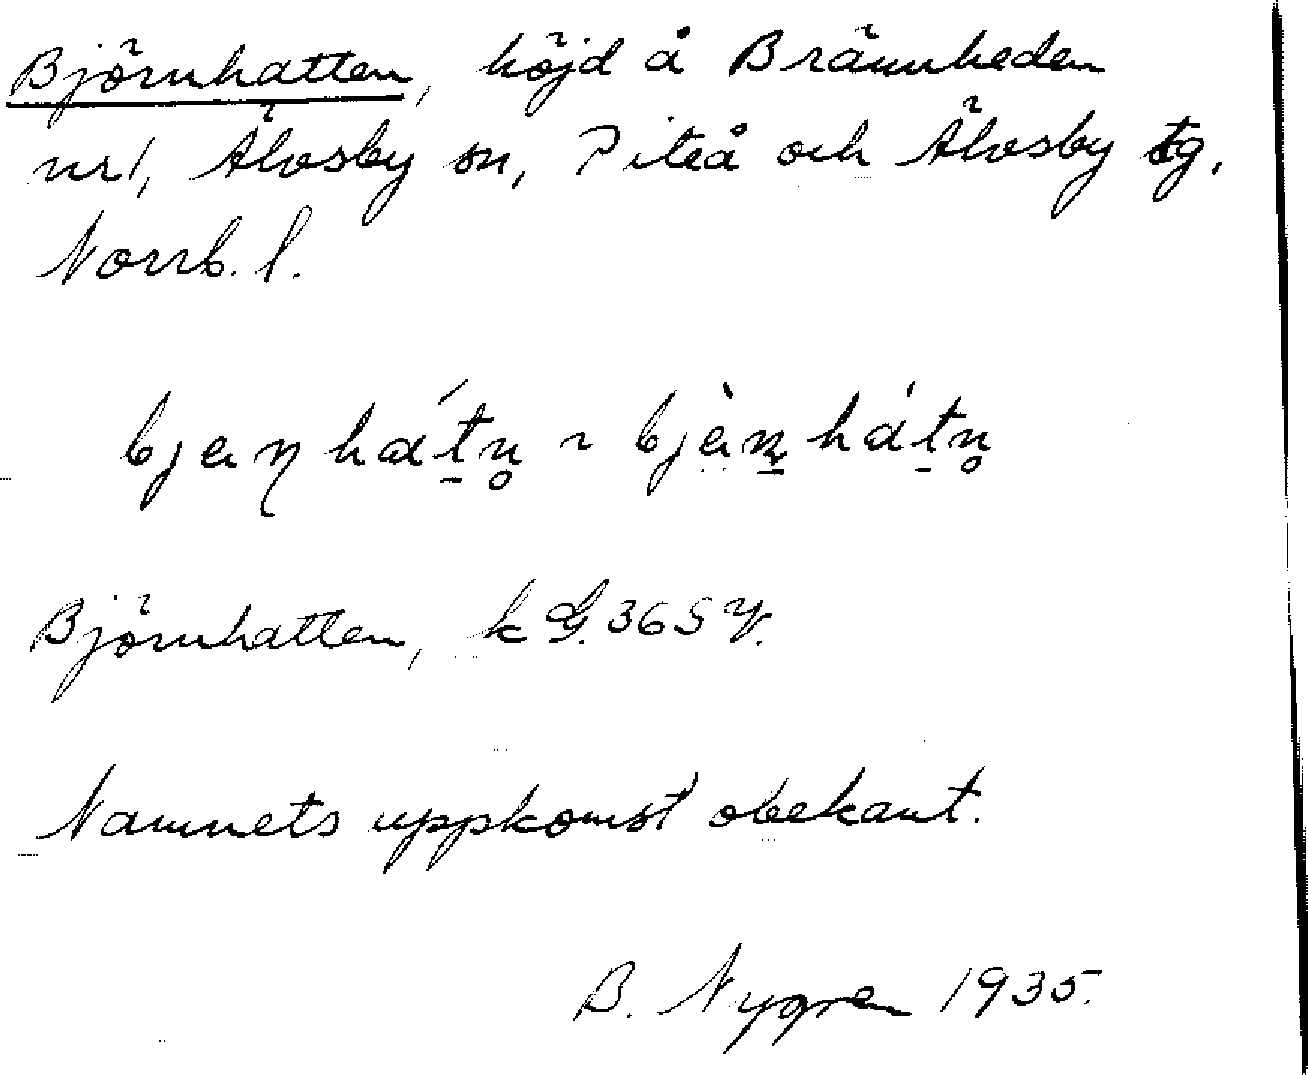 Björnhatten, höjd å Brännheden
nr 1, Älvsby sn, Piteå och Älvsby tg,
Norrb. l.
Björnhatten, k G. 365 V.
Namnets uppkomst obekant.
B. Nygren 1935.